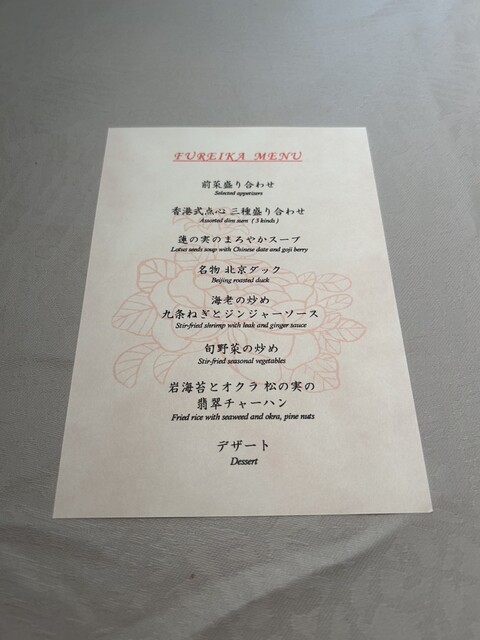 FUREIKA MENU
前菜盛り合わせ
Selected appetizers
香港式点心 三種盛り合わせ
Assorted dim sum ( 3 kinds )
蓮の実のまろやかスープ
Lotus seeds soup with Chinese date and goji berry
名物 北京ダック
Beijing roasted duck
海老の炒め
九条ねぎとジンジャーソース
Stir-fried shrimp with leak and ginger sauce
旬野菜の炒め
Stir-fried seasonal vegetables
岩海苔とオクラ 松の実の
翡翠チャーハン
Fried rice with seaweed and okra, pine nuts
デザート
Dessert